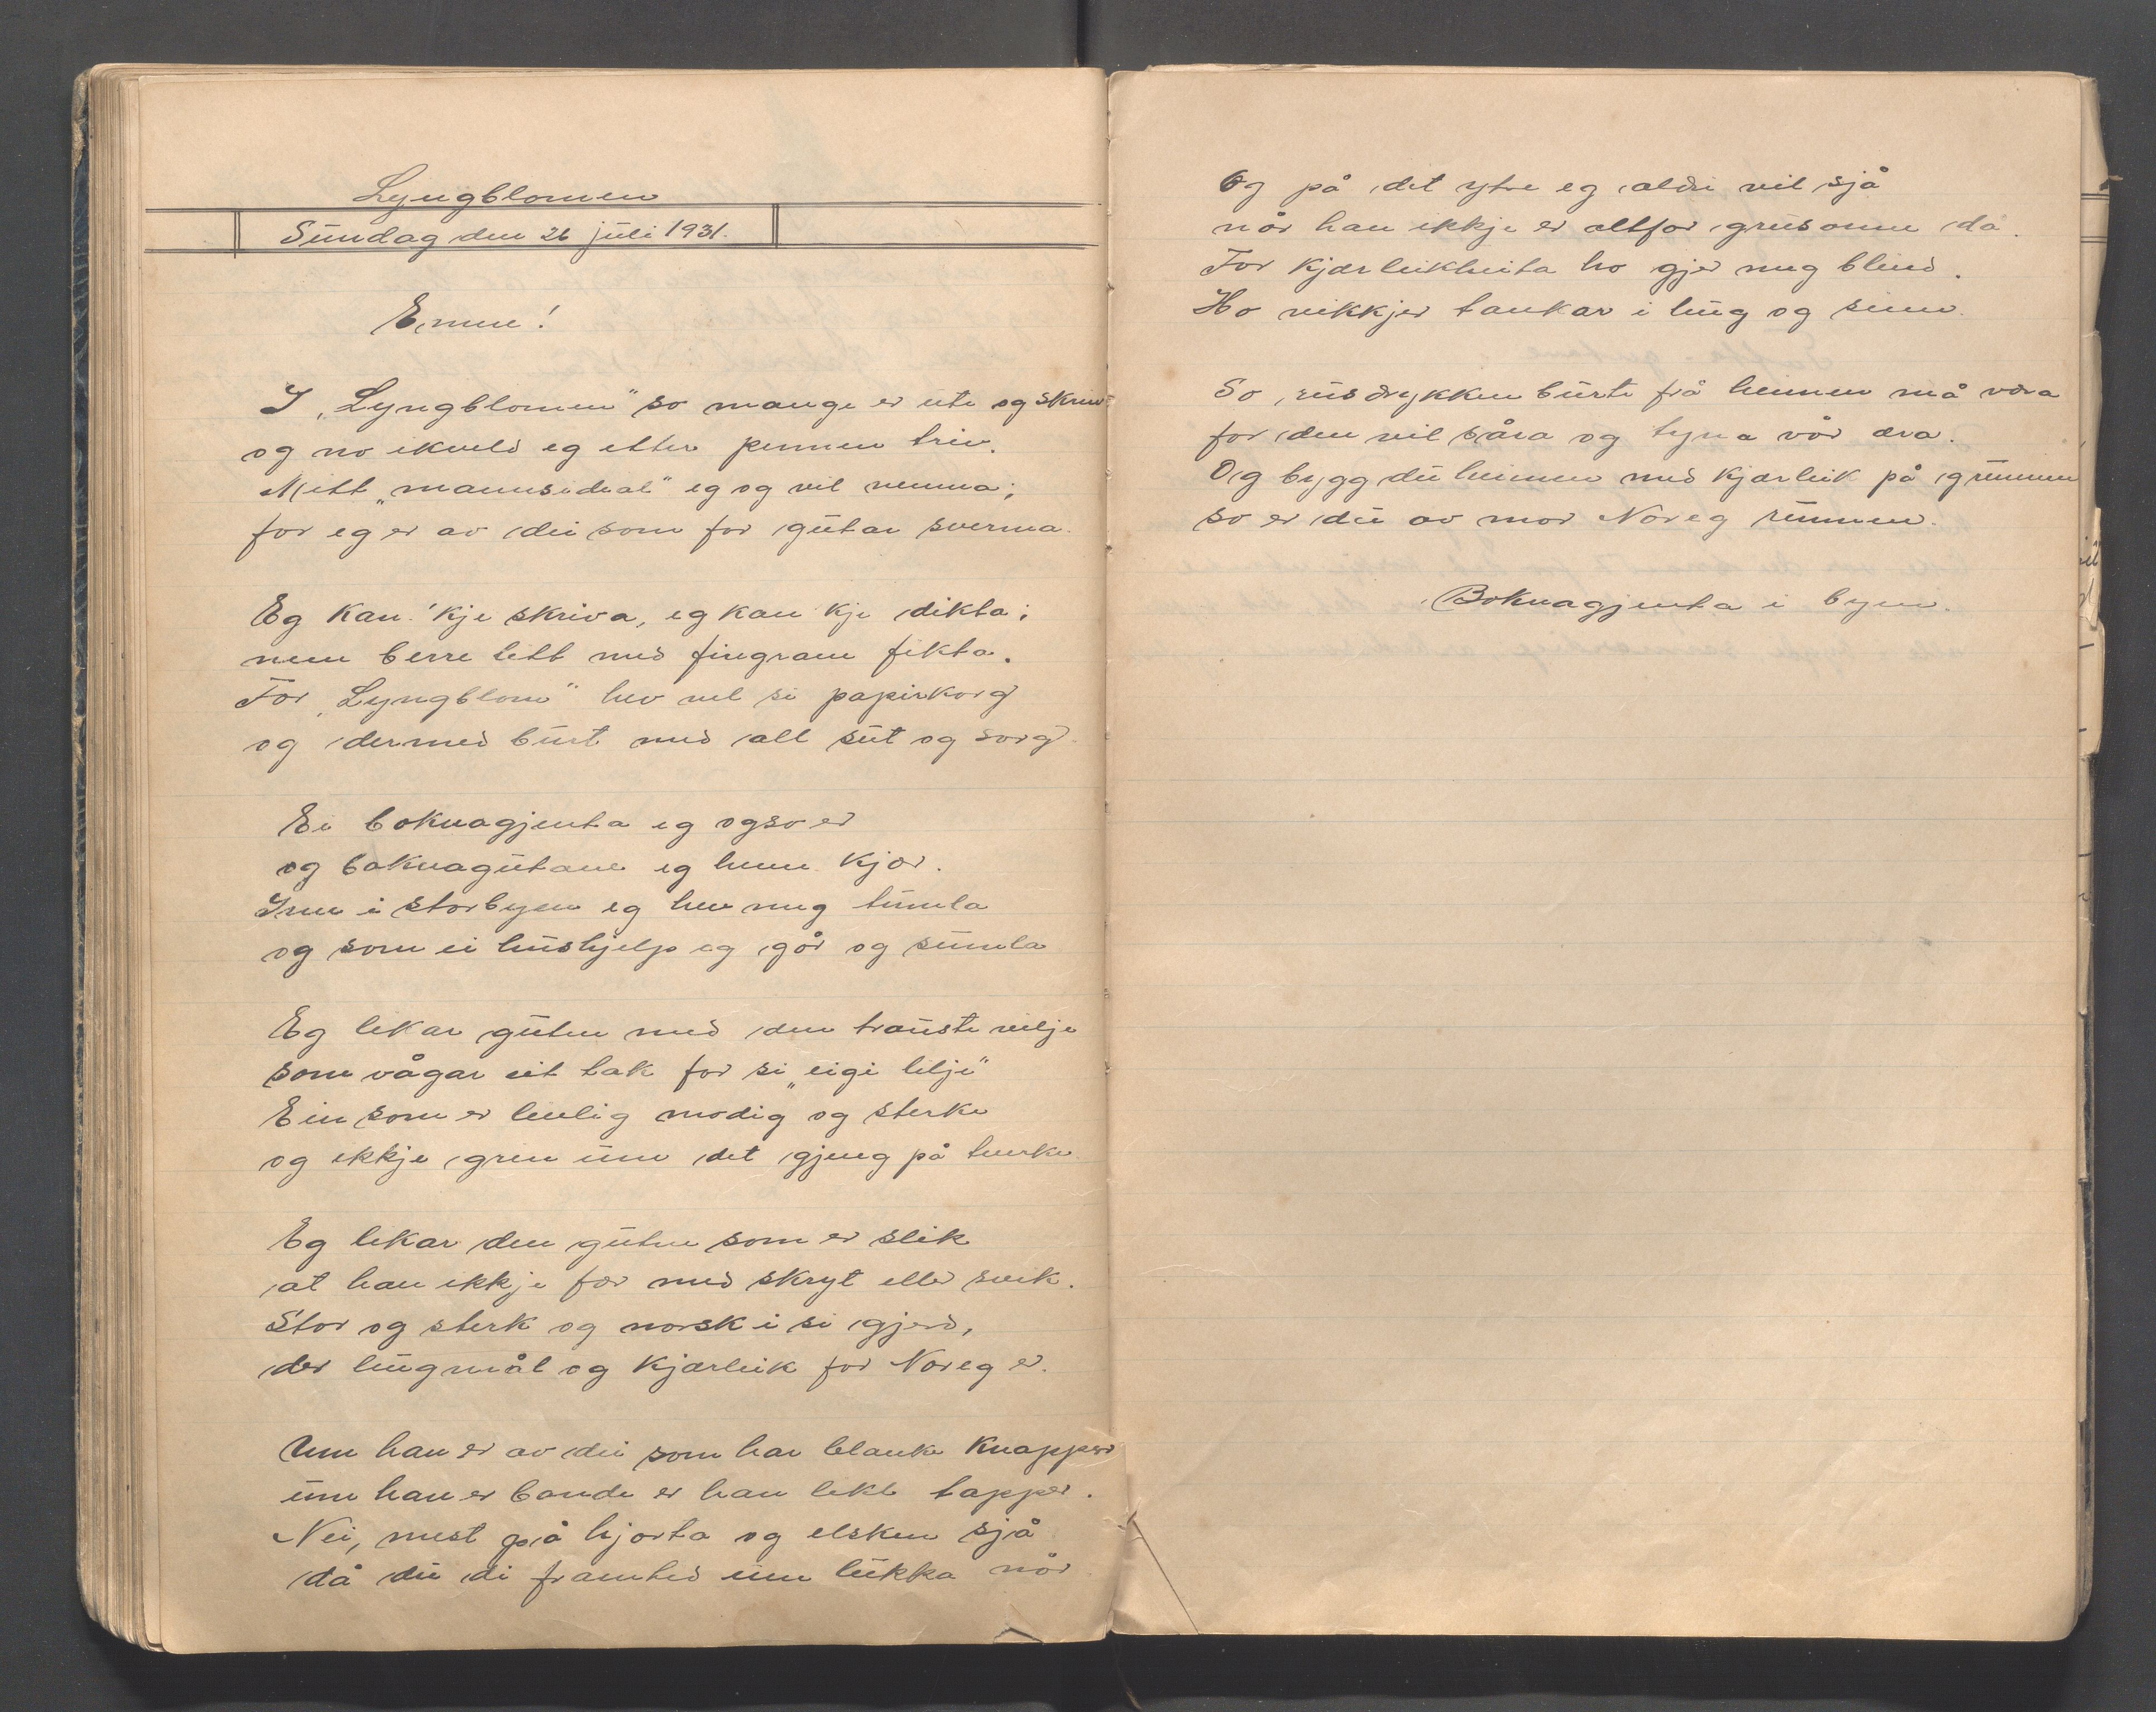 Lyngblomen
Sundag den 26 juli 1931.
Emne!
I „Lyngblomen" so mange er ute og skriv
og no ikveld eg etter pennen triv.
Mitt „mannsideal" eg og vil nemna;
for eg er av dei som for gutar sverma.
Eg kan 'kje skriva, eg kan kje dikta;
men berre litt med fingrane fikta.
For „Lyngblom" hev vel si papirkorg
og dermed burt med all sut og sorg.
Ei boknagjenta eg ogso er
og boknagutane eg hev kjær.
Inn i storbyen eg hev meg tumla
og som ei hushjelp eg går og sumla
Eg likar guten med den trauste vilje
som vågar eit tak for si „eigi lilje"
Ein som er livlig modig og sterke
og ikkje gren um det gjeng på tverke
Eg likar den guten som er slik
at han ikkje for med skryt eller svik.
Stor og sterk og norsk i si gjerd,
der hugmål og kjærleik for Noreg er.
Um han er av dei som har blanke knapper
um han er bonde er han likt tapper.
Nei, mest på hjarta og elsken sjå
då du di framtid um lukka når
Og på det ytre eg aldri vil sjå
når han ikkje er altfor grusame då.
For kjærleikheita ho gjer meg blind.
Ho vikkjer tankar i hug og sinn.
So rusdrykken burte frå heimen må væra
for den vil såra og tyna vår æra.
Og bygg du heimen med kjærleik på grunnen
so er du av mor Noreg runnen.
Boknagjenta i byen.